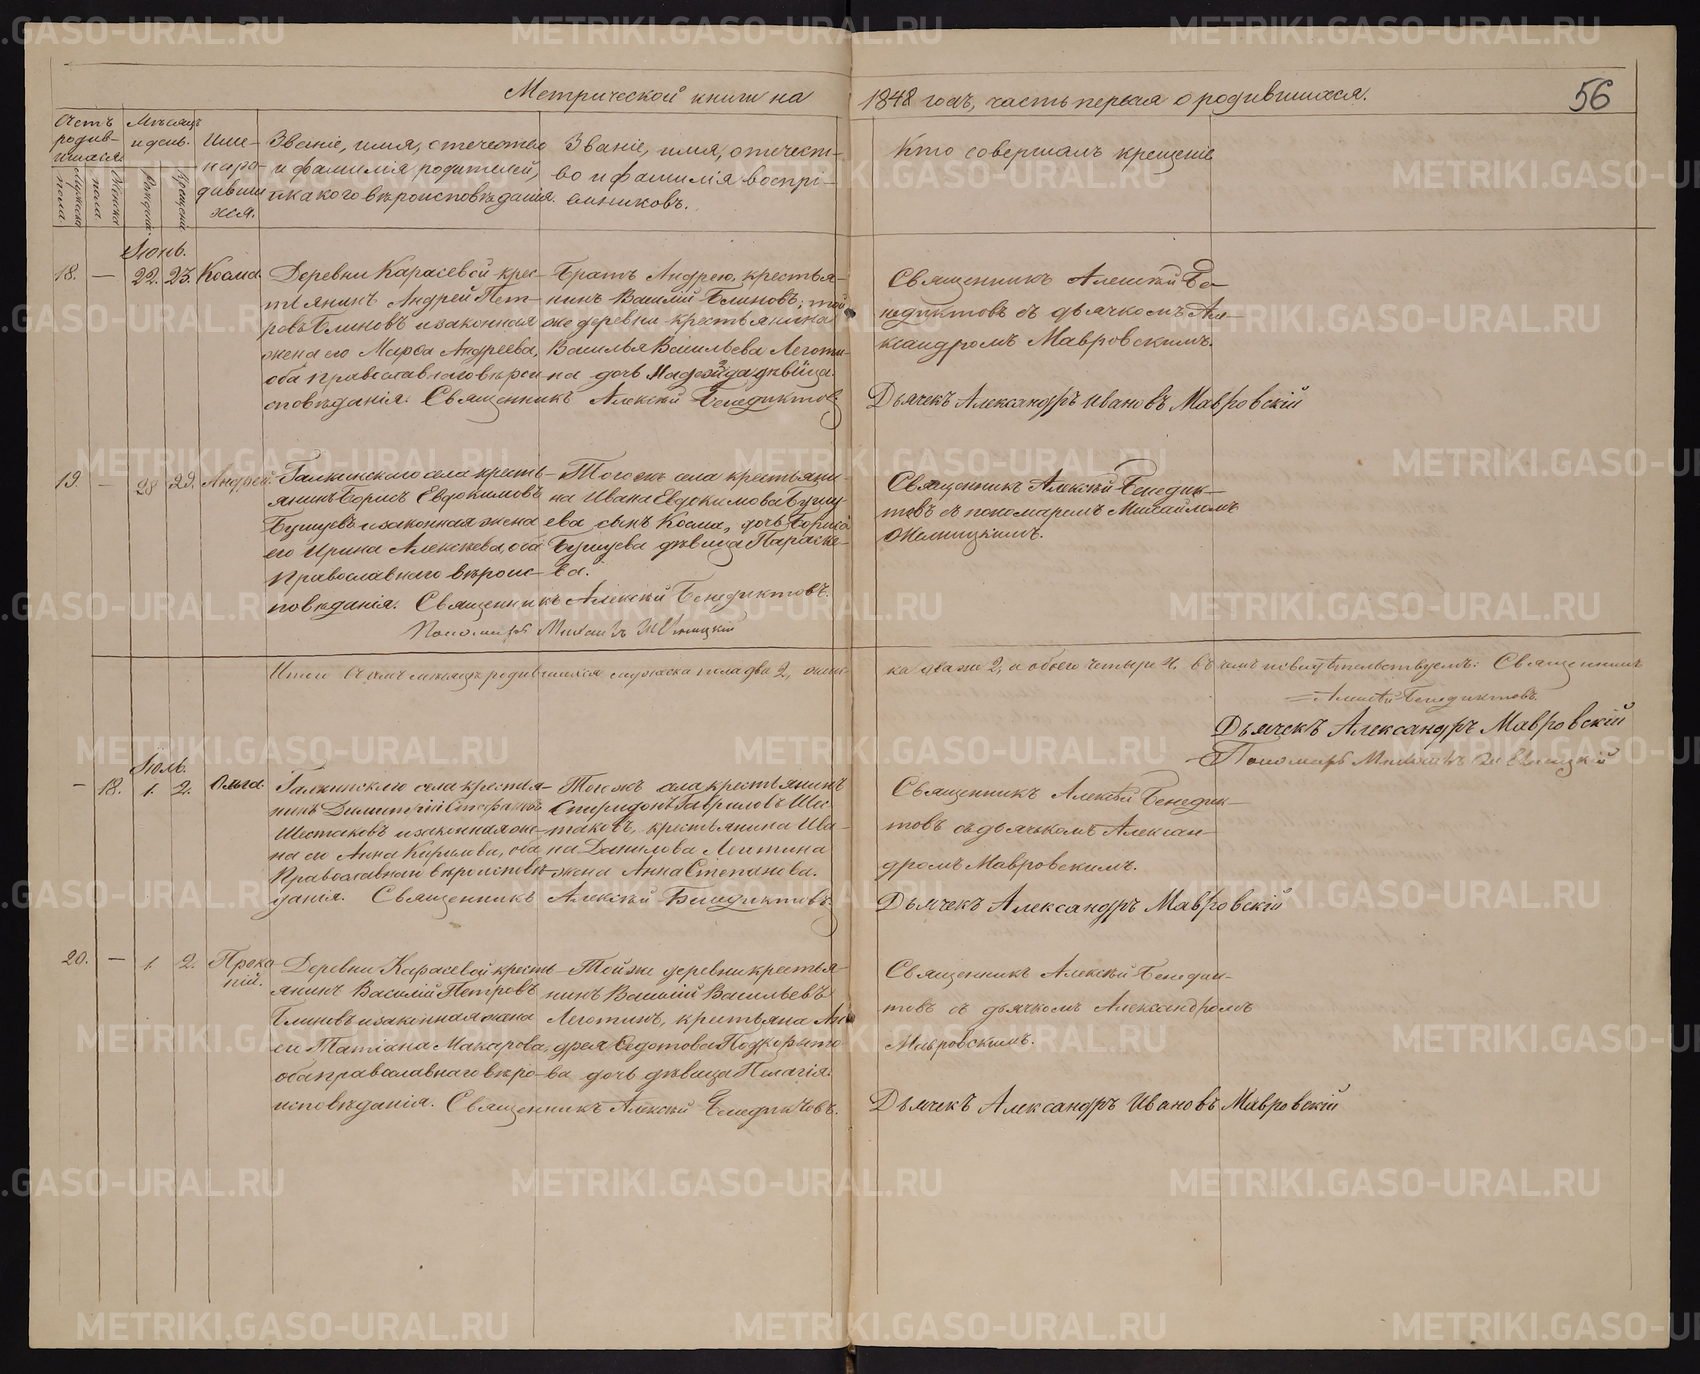 Метрической книги на 1848 годъ, часть первая о родившихся.
56
Счетъ родив-шихся.
Мужска пола.
Женска пола.
Мѣсяцъ и день.
Рожденія.
Крещенія.
Име-на ро-дивши хся.
Званіе, имя, отечество
и фамилія родителей,
и какого вѣроисповѣданія.
Званіе, имя, отечест-
во и фамилія воспрі-
емниковъ.
Кто совершалъ крещеніе
Іюнь.
18. — 22. 23. Косма
Деревни Карасевой крес-
тьянинъ Андрей Пет-
ровъ Блиновъ и законная
жена его Марѳа Андреева,
оба православнаго вѣрои
сповѣданія. Священникъ Алексѣй Бенедиктовъ
Братъ Андрею, крестья-
нинъ Василій Блиновъ; той
же деревни крестьянина
Василья Васильева Леготи-
на дочь дѣвица.
Священникъ Алексѣй Бе-
недиктовъ съ дьячкомъ Але-
ксандромъ Мавровскимъ.
Дьячекъ Александръ Ивановъ Мавровскій
19. — 28 29. Андрей
Галкинскаго села кресть-
янинъ Борисъ Евдокимовъ
Бушуевъ и законная жена
его Ирина Алексѣева, оба
Православнаго вѣроис-
повѣданія. Священникъ Алексѣй Бенедиктовъ.
Пономарь Михаилъ
Тогожъ села крестьяни-
на Ивана Евдокимова Бушу-
ева сынъ Косма, дочь Бориса
Бушуева дѣвица Параске-
ва.
Священникъ Алексѣй Бенедик-
товъ съ пономаремъ Михайломъ
Итого въ семъ месяцѣ родившихся мужска пола два 2, женс-
ка два же 2, а обоего четыре 4. въ чемъ и свидѣтельствуемъ: Священникъ
Алексѣй Бенедиктовъ.
Дьячекъ Александръ Мавровскій
Пономарь Михаилъ
Іюль.
— 18. 1. 2. Ольга
Галкинскаго села крестья-
нинъ Димитрій Стефановъ
Шестаковъ и законная же-
на его Анна Кирилова, оба
Православнаго вѣроисповѣ-
данія. Священникъ Алексѣй Бенедиктовъ
Тогожъ села крестьянинъ
Спиридонъ Гавриловъ Шес-
таковъ, крестьянина Ива-
на Данилова
жена Анна Степанова.
Священникъ Алексѣй Бенедик-
товъ съ дьячкомъ Алексан-
дромъ Мавровскимъ.
Дьячекъ Александръ Мавровскій
20. — 1. 2. Проко-
пій.
Деревни Карасевой кресть-
янинъ Василій Петровъ
Блиновъ и законная жена
его Татіана Макарова,
оба православнаго вѣро-
исповѣданія. Священникъ Алексѣй Бенедиктовъ.
Той же деревни крестья-
нинъ Василій Васильевъ
Леготинъ, крестьяна Ан-
дрея Ѳедотова Подкорыто
ва дочь дѣвица Пелагія.
Священникъ Алексѣй Бенедик-
товъ съ дьячкомъ Александромъ
Мавровскимъ.
Дьячекъ Александръ Ивановъ Мавровскій
METRIKI.GASO-URAL.RU